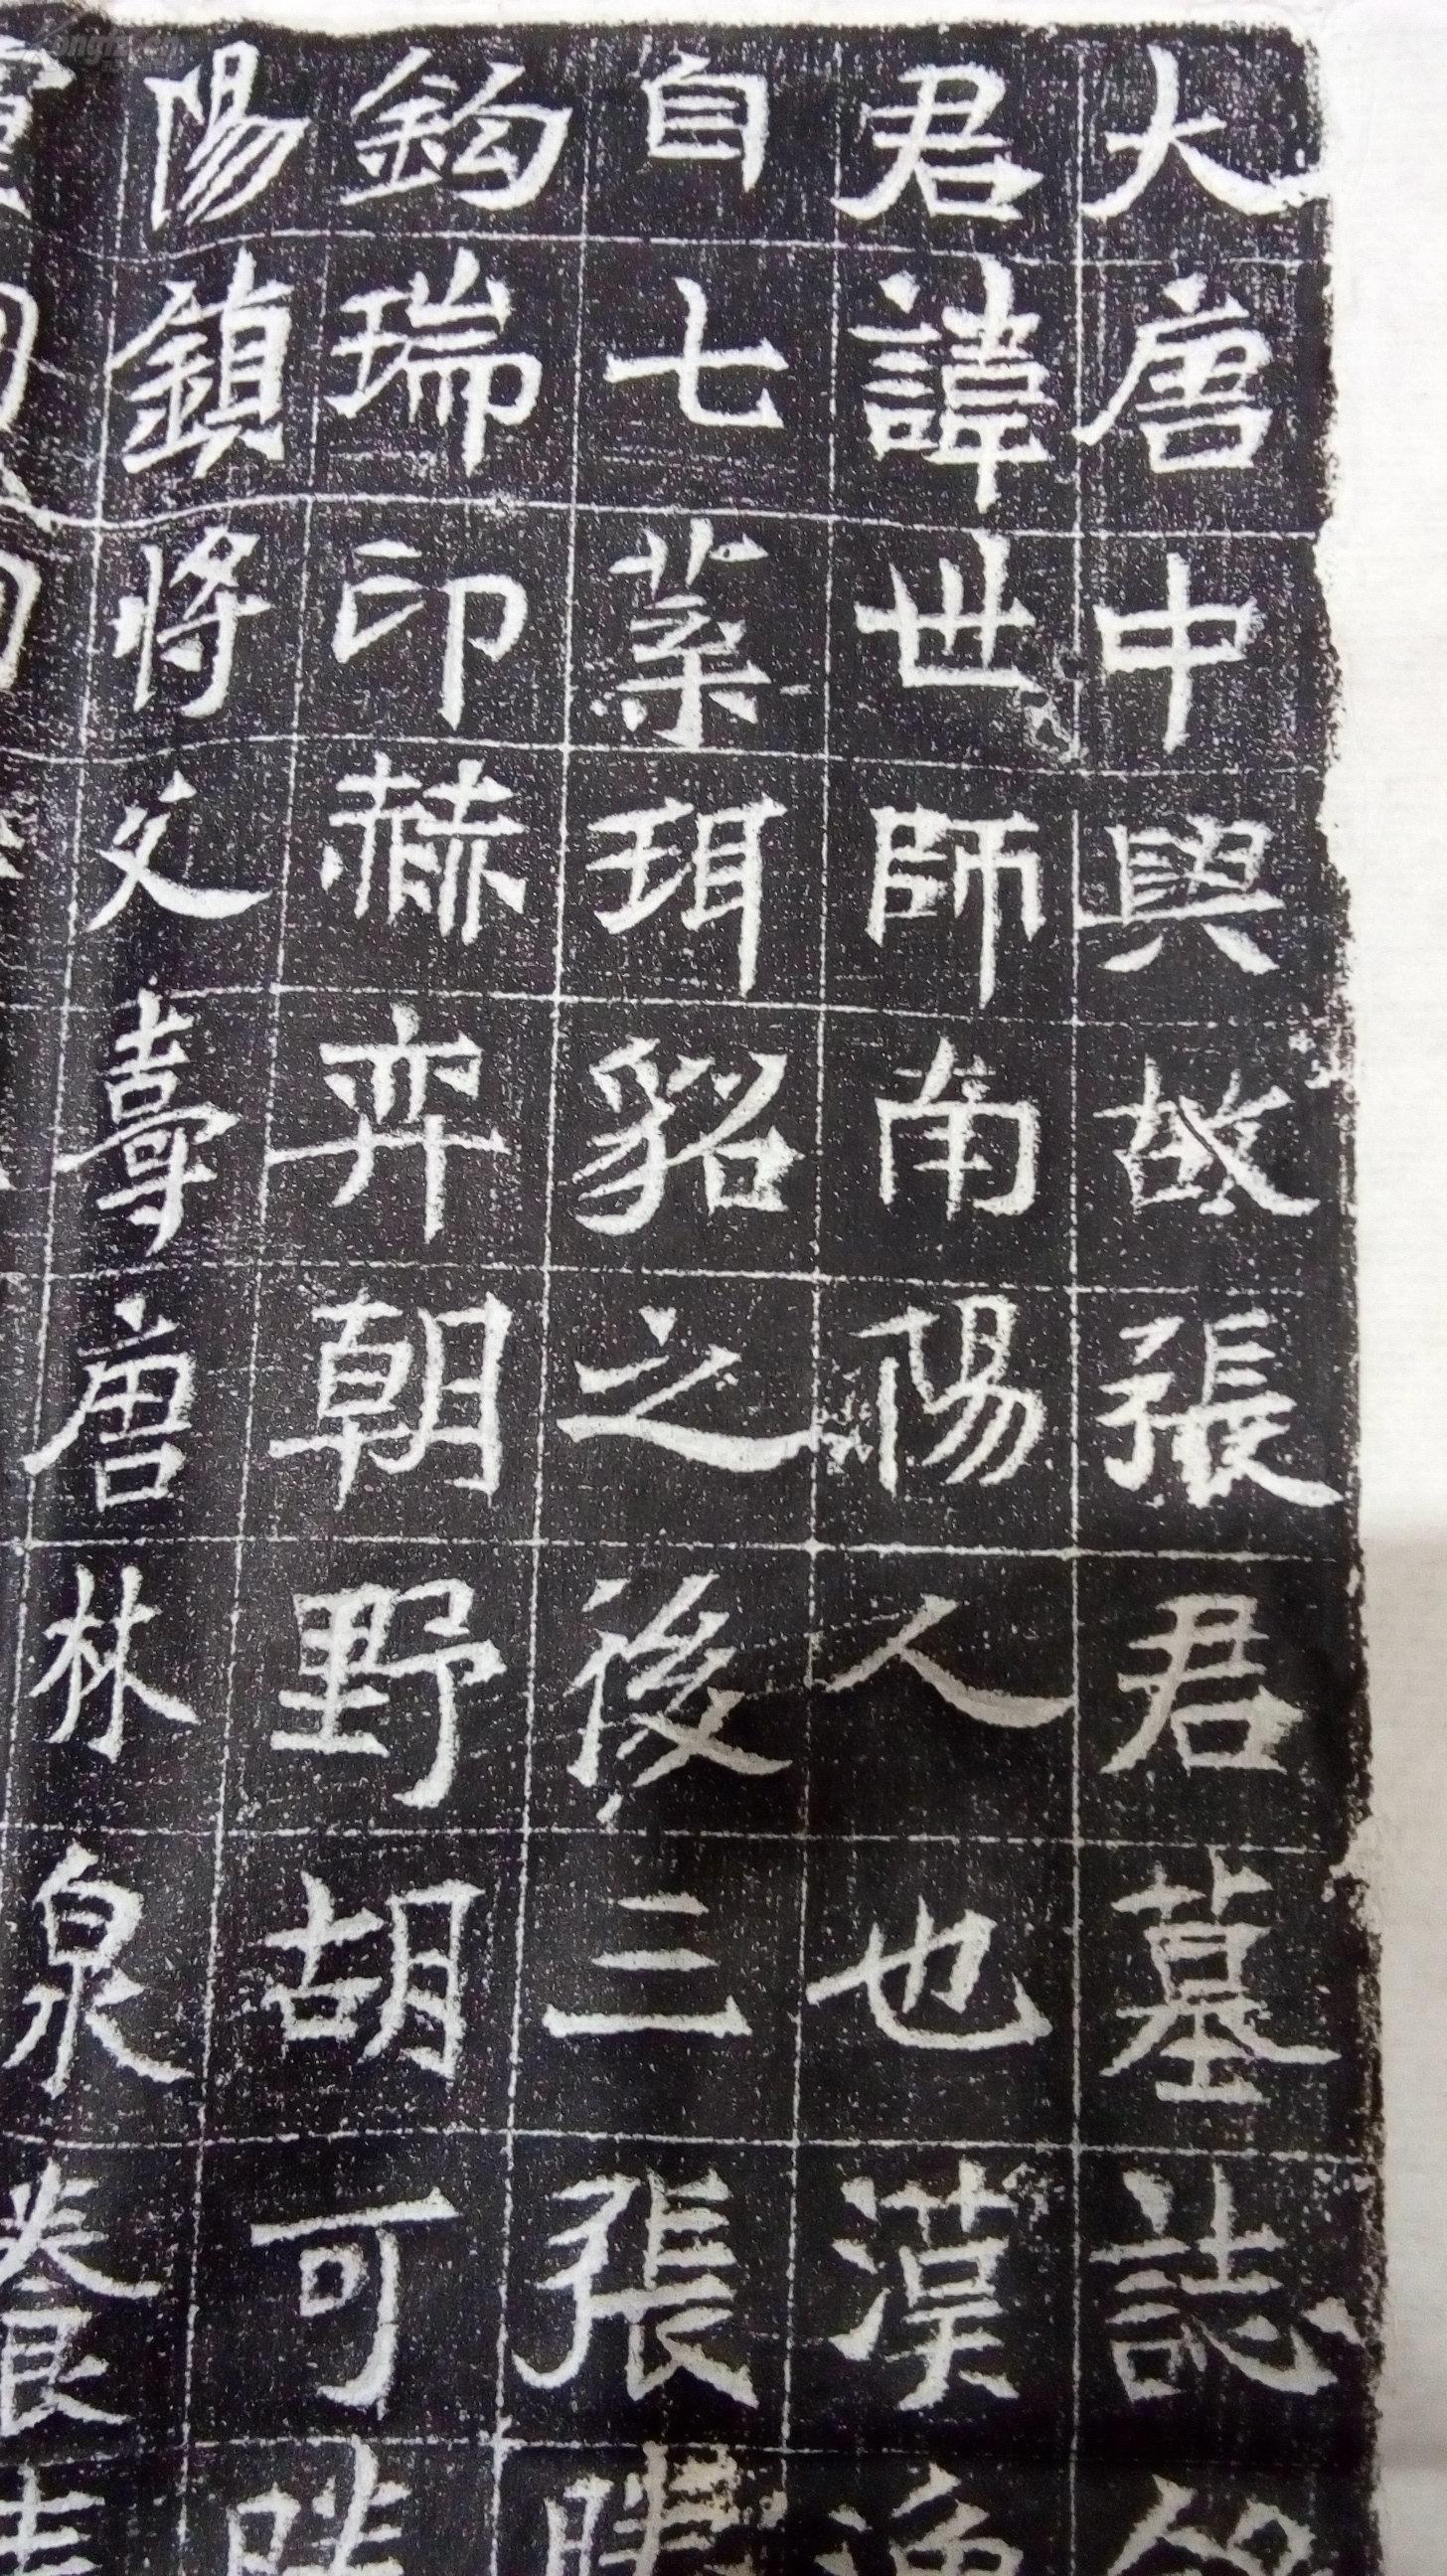 大唐中興故張君墓誌
君諱世師南陽人也漢
自七葉珥貂之後三張
鈎瑞印赫弈朝野胡可
陽鎮將父壽唐林泉養